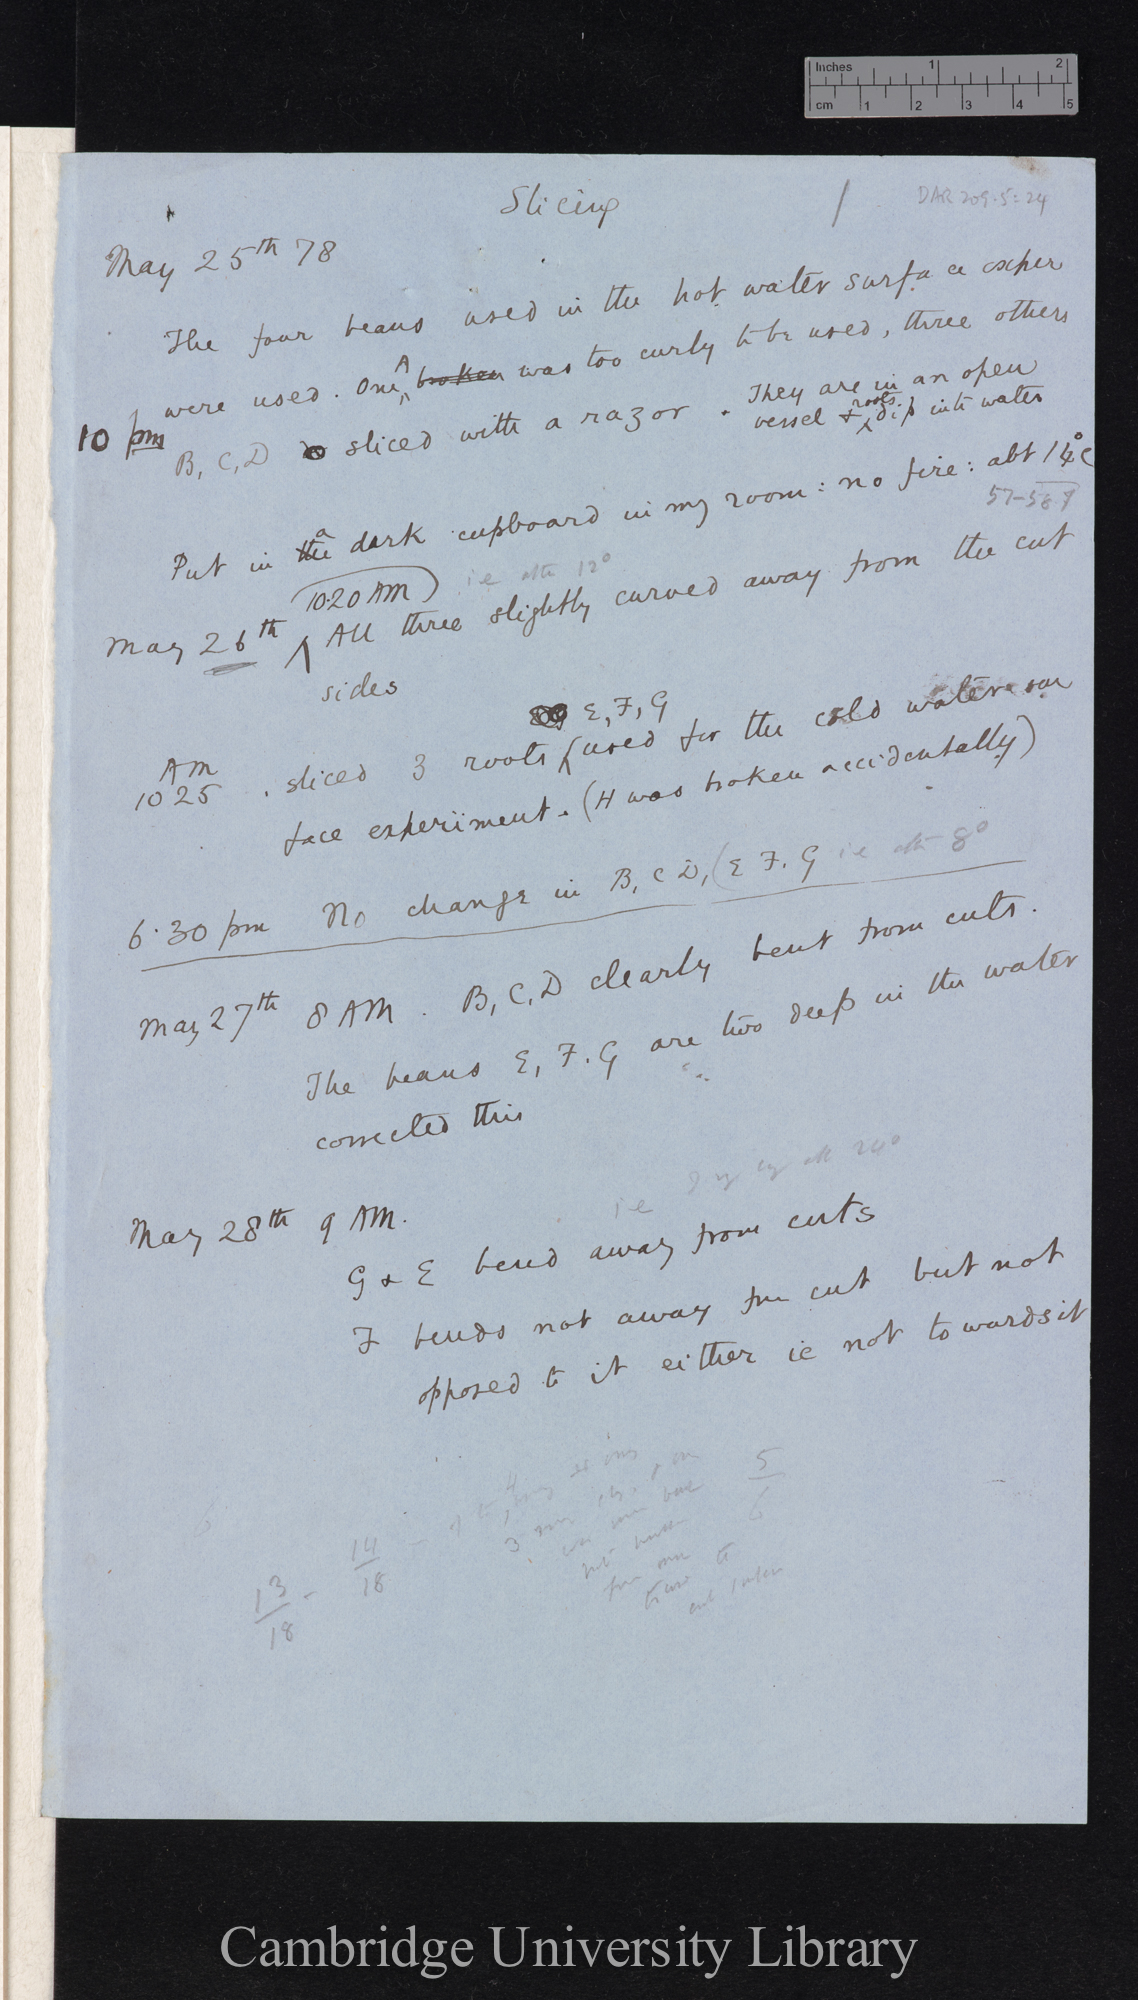 Inches 1 2
cm 1 2 3 4 5
Slicing 1 DAR 209.5:24
May 25th 78
The four beans used in the hot water surface exper
were used. One A broken was too curly to be used, three others
10 pm B, C, D sliced with a razor. They are in an open
vessel & roots dip into water
Put in the a dark cupboard in my room: no fire: abt 14°C
57-58 F
10.20 AM i.e. after 12°
May 26th All three slightly curved away from the cut
sides
E, F, G
AM
10 25 . sliced 3 roots (used for the cold water sur
face experiment. (H was broken accidentally)
6.30 pm No change in B, C D, (E F. G i.e. after 8°
May 27th 8 AM. B, C, D clearly bent from cuts.
The beans E, F. G are two deep in the water
corrected this
i.e after 24°
May 28th 9 AM.
G & E bend away from cuts
F bends not away fm cut but not
opposed to it either ie not towards it
5
6
14
18
13
18
Cambridge University Library